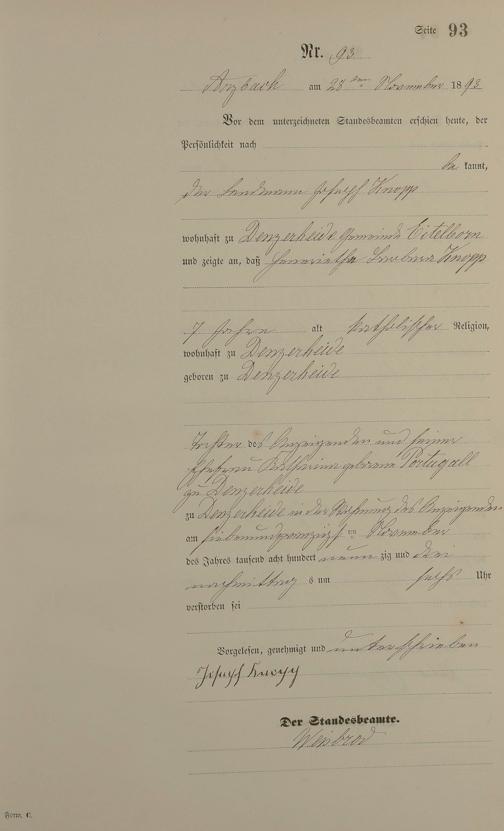 Seite 93
Nr. 93
Arzbach am 28 ten November 1893
Vor dem unterzeichneten Standesbeamten erschien heute, der
Persönlichkeit nach
be kannt,
der Landmann Joseph Knopp
wohnhaft zu Denzerheide Gemeinde Eitelborn
und zeigte an, daß Henrietha Barbara Knopp
7 Jahre alt katholischer Religion,
wohnhaft zu Denzerheide
geboren zu Denzerheide
Tochter des Anzeigenden und seiner
Ehefrau Katharina geborene Portugall
zu Denzerheide
zu Denzerheide in der Wohnung des Anzeigenden
am siebenundzwanzigsten November
des Jahres tausend acht hundert neun zig und drei
nachmittag s um sechs Uhr
verstorben sei
Vorgelesen, genehmigt und unterschrieben
Joseph Knopp
Der Standesbeamte.
Weisbrod
Form. C.